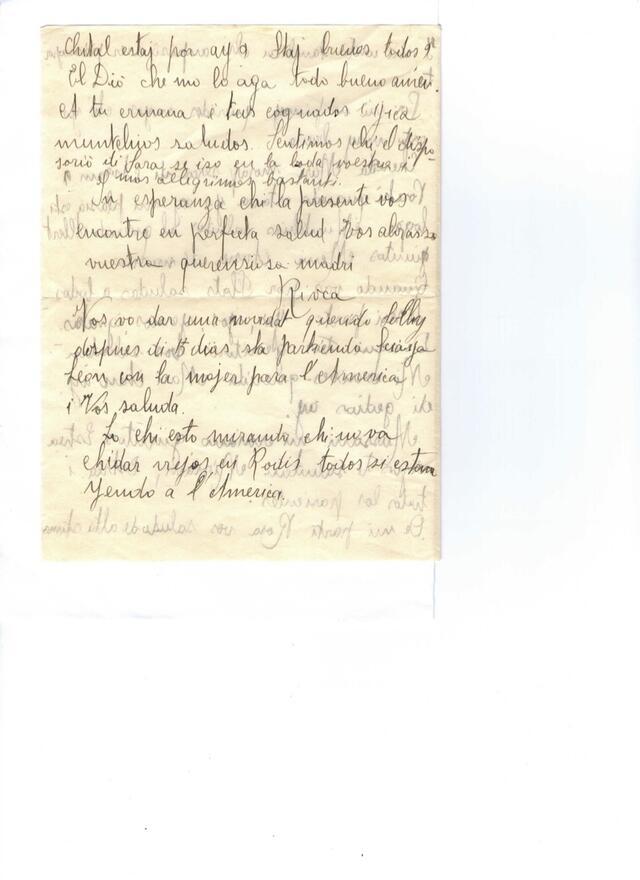 Chital estaj por aya Staj buenos todos?
El Dió che mo lo aga todo bueno amen.
A tu ermana i tus cognados i Gica
muntchos saludos. Sentimos chi el dispo-
sorio di Sara se izo en la boda vuestra i
il mos alegrimos bastanti.
In esperanza chi la presente vos
encontre en perfecta salud Vos abrasso
vuestra querensiosa madri
Rivca
Vos vo dar una novidat querido Solly
dospues di 15 dias sta partiendo
Leon con la mujer para l'America
i Vos saluda.
Lo chi esto mirando chi no va
chidar viejos en Rodis todos si estan
yendo a l'America.